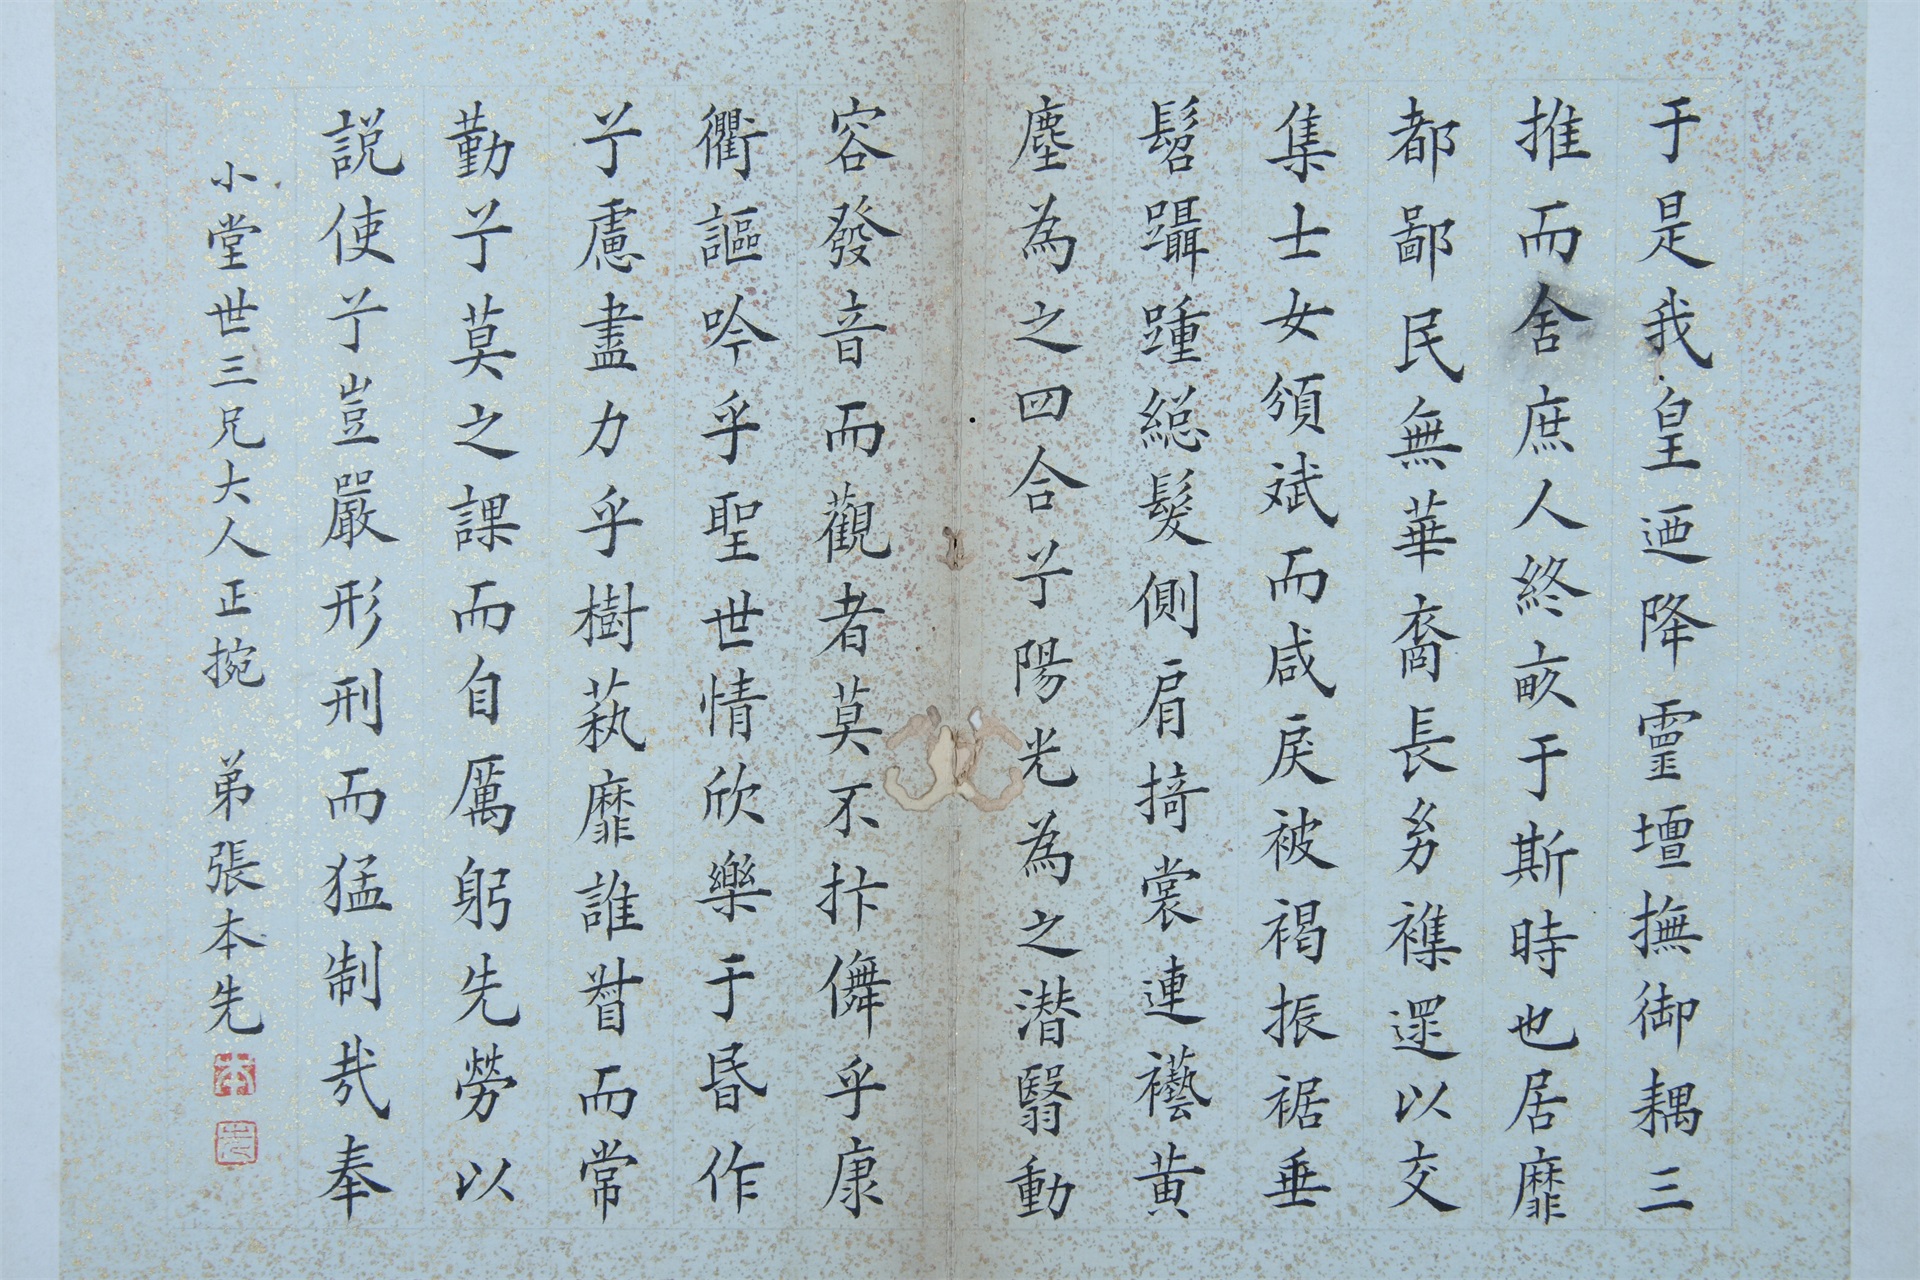 于是我皇迺降靈壇撫御耦三
推而舍庶人終畝于斯時也居靡
都鄙民無華裔長幼襍遝以交
集士女頒斌而咸戾被褐振裾垂
髫躡踵總髮側肩掎裳連襼黃
塵為之四合兮陽光為之潛翳動
容發音而觀者莫不抃儛乎康
衢謳吟乎聖世情欣樂于昏作
兮慮盡力乎樹蓺靡誰督而常
勤兮莫之課而自厲躬先勞以
說使兮豈嚴形刑而猛制哉奉
小堂世三兄大人正捥 弟張本先